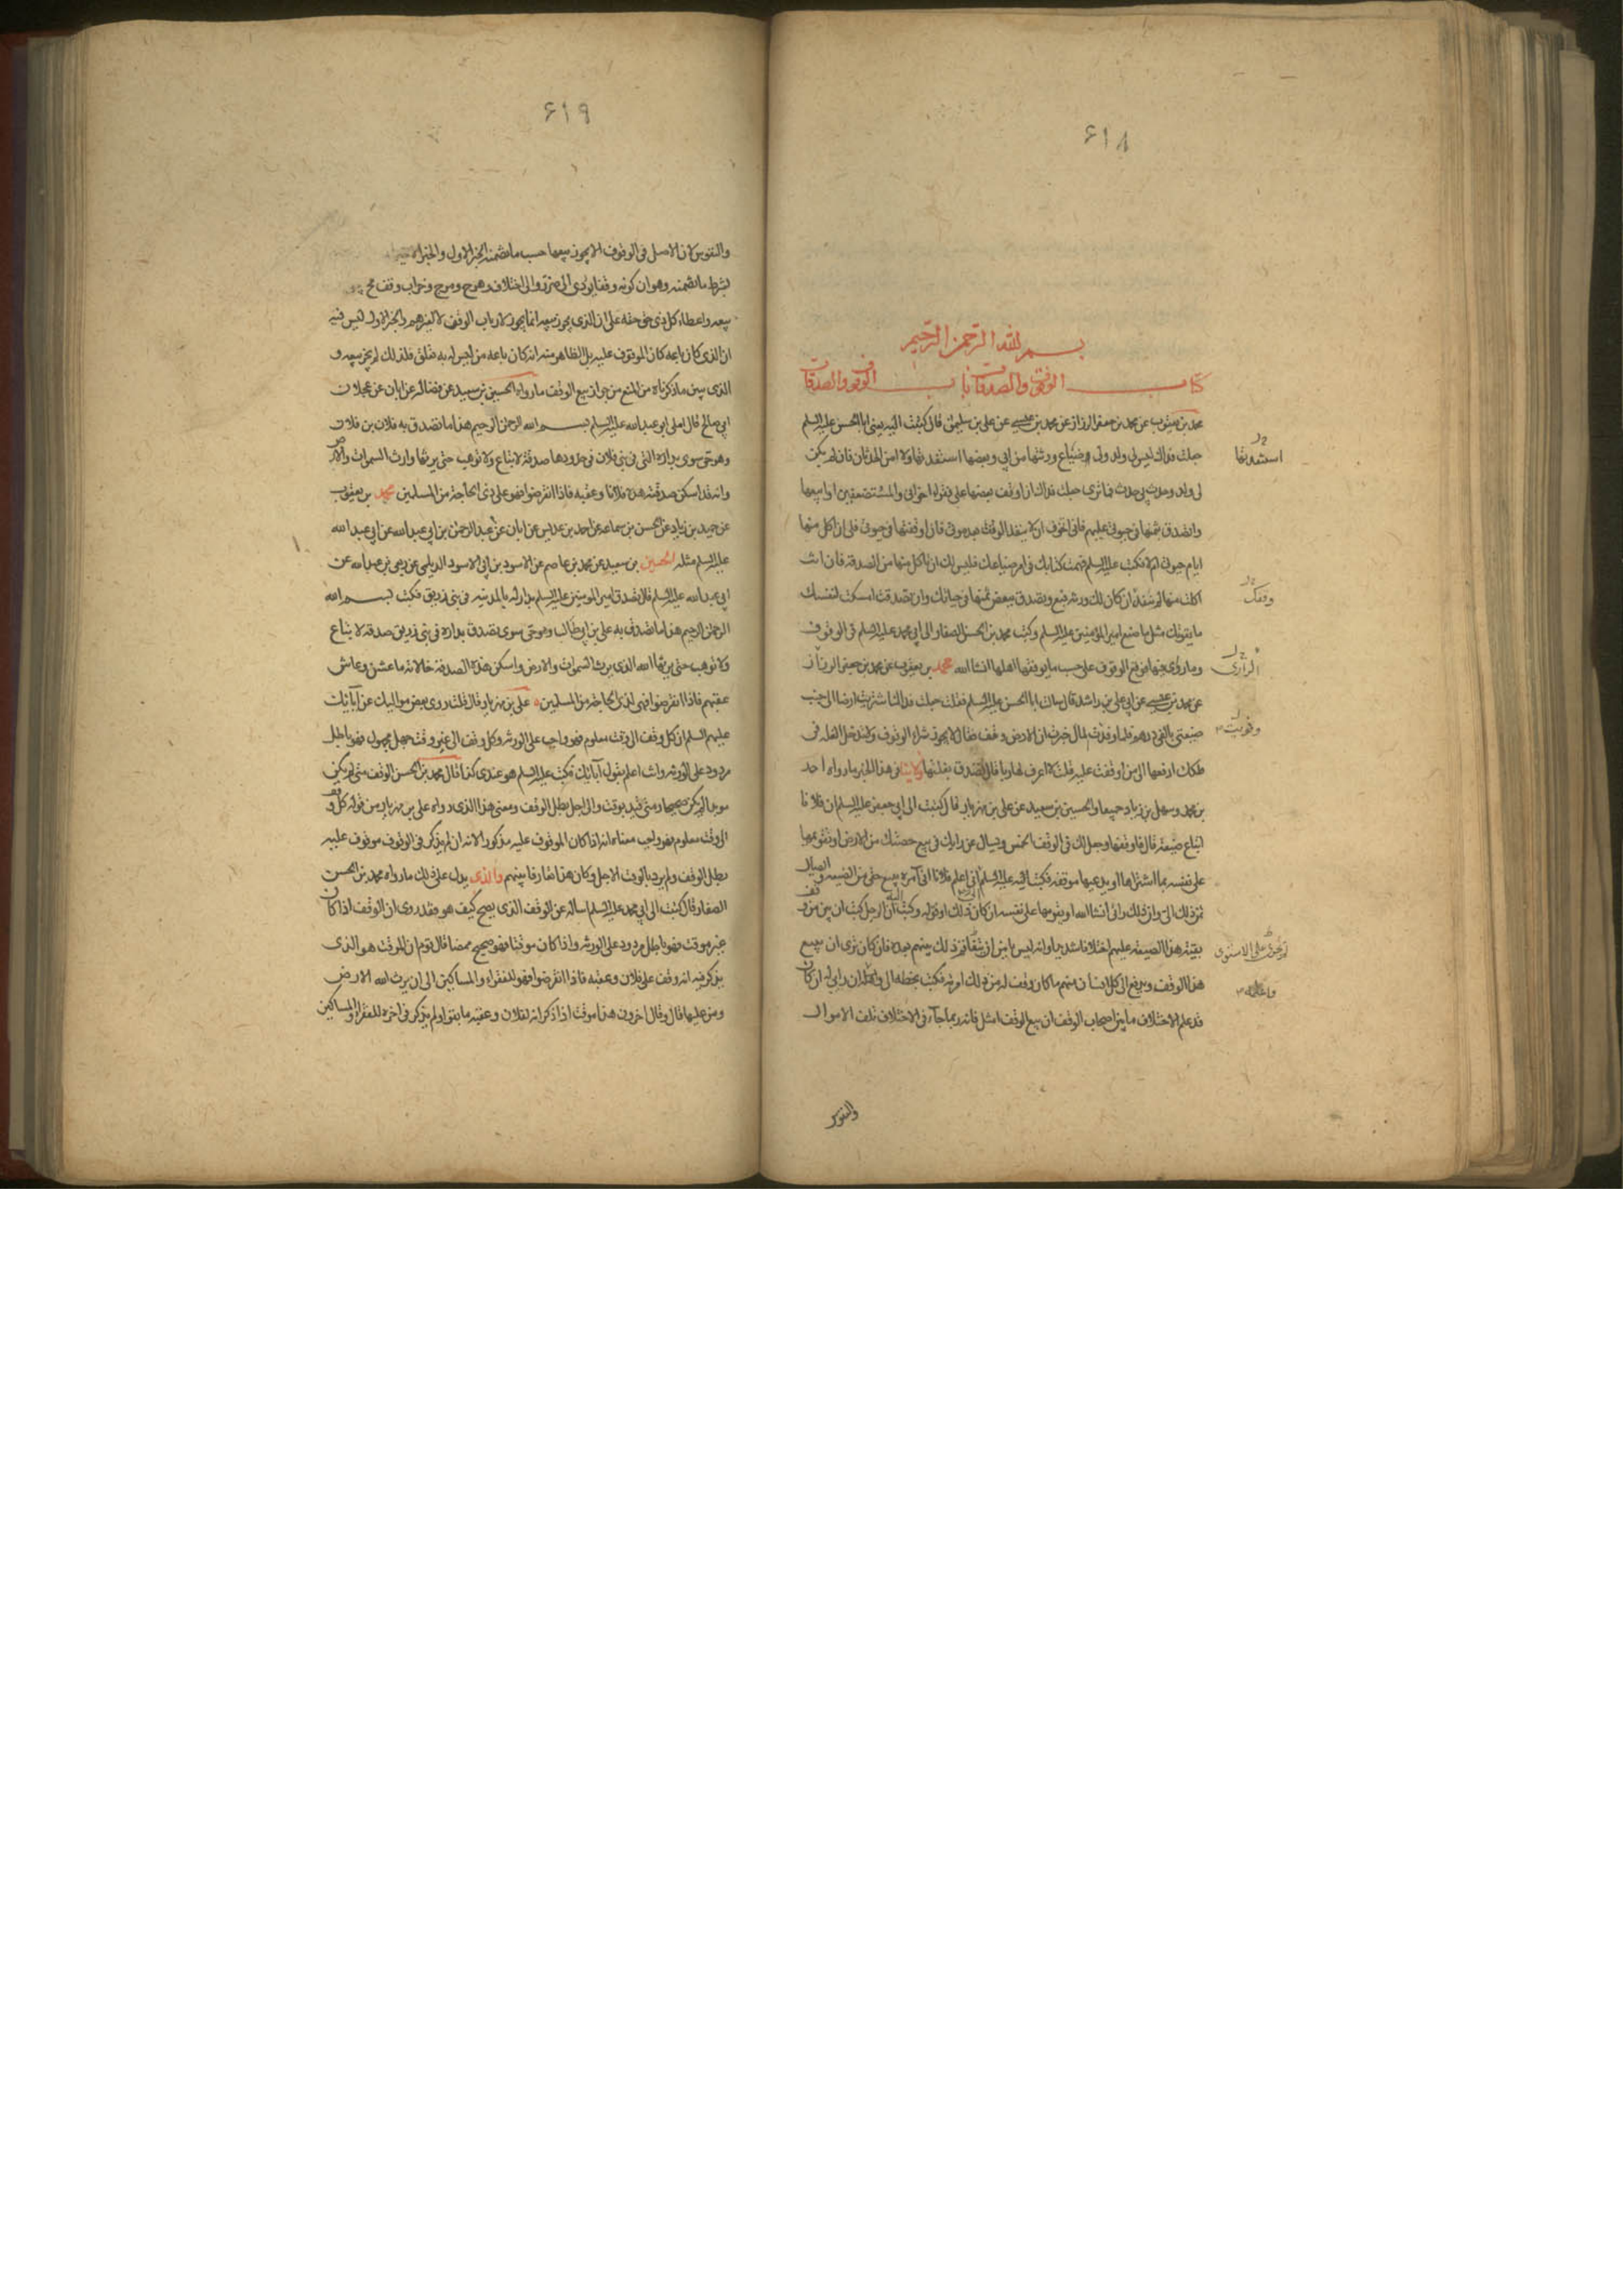 ٤١٨
بسم الله الرحمن الرحيم
كتاب الوقوف والصدقات باب الوقوف والصدقات
محمد بن يعقوب عن محمد بن جعفر الرزاز عن محمد بن عيسى عن علي بن سليمن قال كتبت اليه يعنى ابا الحسن عليه السلم
جعلت فداك ليس لى ولد ولى ضياع ورثتها من ابي وبعضها استفدتها ولا امن الحدثان فان لم يكن
لى ولد وحدث بي حدث فما ترى جعلت فداك ان اوقف بعضها على فقراء اخوانى والمستضعفين او ابيعها
واتصدق بثمنها في حيوتى عليهم فانى اتخوف ان لا ينفذ الوقف بعد موتى فان اوقفتها في حيوتى فلى ان اكل منها
ايام حيوتى ام لا فكتب عليه السلم فهمت كتابك في امر ضياعك فليس لك ان تاكل منها من الصدقة فان انت
اكلت منها لم تنفذ ان كان لك ورثة فبع وتصدق ببعض ثمنها في حياتك وان تصدقت امسكت لنفسك
ما يقوتك مثل ما صنع امير المؤمنين عليه السلم وكتب محمد بن الحسن الصفار الى ابي محمد عليه السلم في الوقوف
وما روى فيها فوقع الوقوف على حسب ما يوقفها اهلها انشا الله محمد بن يعقوب عن محمد بن جعفر الرزاز
عن محمد بن عيسى عن ابي علي بن راشد قال سالت ابا الحسن عليه السلم فقلت جعلت فداك اشتريت ارضا الى جنب
ضيعتى بالفى درهم فلما وفرت المال خبرت ان الارض وقف فقال لا يجوز شراء الوقوف ولا تدخل الغلة في
ملكك ادفعها الى من اوقفت عليه قلت لا اعرف لها ربا قال تصدق بغلتها ولا ينافى هذا الخبر ما رواه احمد
بن محمد وسهل بن زياد جميعا والحسين بن سعيد عن علي بن مهزيار قال كتبت الى ابي جعفر عليه السلم ان فلانا
ابتاع ضيعة قال فاوقفها وجعل لك في الوقف الخمس ويسال عن رايك في بيع حصتك من الارض او تقويمها
على نفسه بما اشتراها او يدعها موقفة فكتب اليه عليه السلم انى اعلم فلانا انى آمره ببيع حقى من الضيعة وايصال
ثمن ذلك الى وان ذلك رائى انشا الله او يقومها على نفسه ان كان ذلك اوفق له وكتبت اليه ان الرجل كتب ان بين من وقف
بقية هذا الضيعة عليهم اختلافا شديدا وانه ليس يامن ان يتفاقم ذلك بينهم بعده فان كان ترى ان يبيع
هذا الوقف ويدفع الى كل انسان منهم ما كان وقف له من ذلك امرته فكتب بخطه الى واعلمه ان رايى له ان كان
قد علم الاختلاف ما بين اصحاب الوقف ان بيع الوقف امثل فانه ربما جاء في الاختلاف تلف الاموال
استفدتها
وقفك
الرازى
وفريت
واعلمه
والنفوس
٤١٩
والنفوس لان الاصل في الوقوف الا يجوز بيعها حسب ما تضمنه الخبر الاول والخبر انما
بشرط ما تضمنه وهو ان كونه وقفا يؤدى الى ضرر والى اختلاف وهرج ومرج وخراب وقف
بيعه واعطاء كل ذى حق حقه على ان الذى يجوز بيعه انما يجوز لارباب الوقف لا لغيرهم والخبر الاول ليس فيه
ان الذى كان باعه كان الموقوف عليه بل الظاهر منه انه كان باعه من ليس له به تعلق فلذلك لم يجز بيعه و
الذى يبين ما ذكرناه من المنع من جواز بيع الوقف ما رواه الحسين بن سعيد عن فضالة عن ابان عن عجلان
ابي صالح قال املى ابي عبد الله عليه السلم بسم الله الرحمن الرحيم هذا ما تصدق به فلان بن فلان
وهو حى سوى بداره التى في بنى فلان في حدودها صدقة لا تباع ولا توهب حتى يرثها وارث السموات والارض
وانه قد اسكن صدقته هذه فلانا وعقبه فاذا انقرضوا فهو على ذى الحاجة من المسلمين محمد بن يعقوب
عن حميد بن زياد عن الحسن بن سماعه عن احمد بن عديس عن ابان عن عبد الرحمن بن ابي عبد الله عن ابي عبد الله
عليه السلم مثله الحسين بن سعيد عن محمد بن عاصم عن الاسود بن ابي الاسود الديلى عن ربعى بن عبد الله عن
ابي عبد الله عليه السلم قال تصدق امير المومنين عليه السلم بدار له بالمدينه في بنى زريق فكتب بسم الله
الرحمن الرحيم هذا ما تصدق به علي بن ابي طالب وهو حى سوى تصدق بداره في بنى زريق صدقة لا تباع
ولا توهب حتى يرثها الله الذى يرث السموات والارض واسكن هذه الصدقة خالاته ما عشن وعاش
عقبهم فاذا انقرضوا فهى لذى الحاجة من المسلمين علي بن مهزيار قال قلت روى بعض مواليك عن آبائك
عليهم السلم ان كل وقف الى وقت معلوم فهو واجب على الورثة وكل وقف الى غير وقت جهل مجهول فهو باطل
مردود على الورثة وانت اعلم بقول آبائك فكتب عليه السلم هو عندى كذا قال محمد بن الحسن الوقف متى لم يكن
موبدا لم يكن صحيحا ومتى قيد بوقت والى اجل بطل الوقف ومعنى هذا الذى رواه علي بن مهزيار من قوله كل وقف
الى وقت معلوم فهو واجب معناه انه اذا كان الموقوف عليه مذكورا لانه ان لم يذكر في الوقوف موقوف عليه
بطل الوقف ولم يرد بالوقت الاجل وكان هذا تعارفا بينهم والذى يدل على ذلك ما رواه محمد بن الحسن
الصفار قال كتبت الى ابي محمد عليه السلم اساله عن الوقف الذى يصح كيف هو فقد روى ان الوقف اذا كان
غير موقت فهو باطل مردود على الورثة واذا كان موقتا فهو صحيح ممضا قال قوم ان الموقت هو الذى
يذكر فيه انه وقف على فلان وعقبه فاذا انقرضوا فهو للفقراء والمساكين الى ان يرث الله الارض
ومن عليها قال وقال اخرون هذا موقت اذا ذكر انه لفلان وعقبه ما بقوا ولم يذكر في اخره للفقراء والمساكين